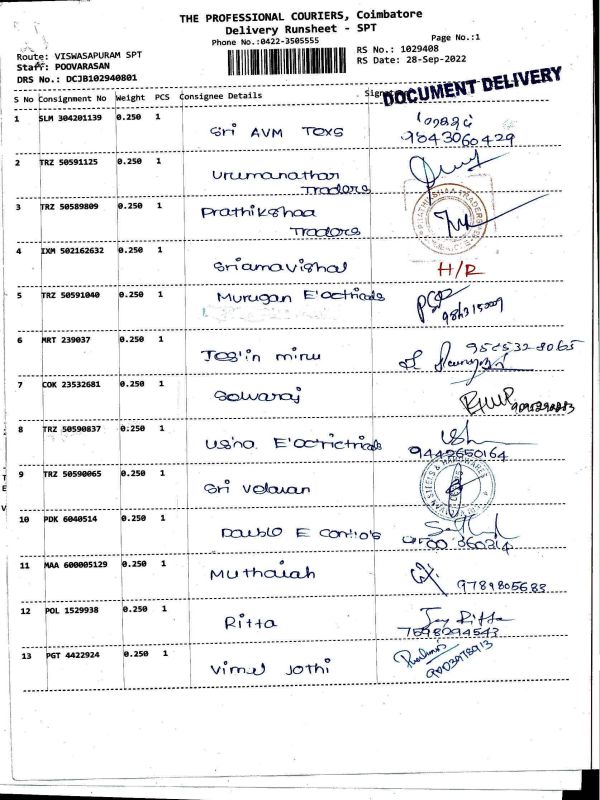 THE PROFESSIONAL COURIERS, Coimbatore
Delivery Runsheet - SPT
Phone No.:0422-3505555
Page No.:1
Route: VISWASAPURAM SPT
RS No.: 1029408
Staff: POOVARASAN
RS Date: 28-Sep-2022
DRS No.: DCJB102940801
DOCUMENT DELIVERY
S No Consignment No Weight PCS Consignee Details
1 SLM 304201139 0.250 1 Sri AVM Texs 9843060429
2 TRZ 50591125 0.250 1 Urumanathar Traders
3 TRZ 50589809 0.250 1 Prathikshaa Traders
4 IXM 502162632 0.250 1 Sriamavishal H/R
5 TRZ 50591040 0.250 1 Murugan E'ectricals
6 MRT 239037 0.250 1 Jeslin minu
7 COK 23532681 0.250 1 Selvaraj
8 TRZ 50590837 0.250 1 Usha E'ectrictricals 9442650164
9 TRZ 50590065 0.250 1 Sri Velavan
10 PDK 6040514 0.250 1 Double E
11 MAA 600005129 0.250 1 Muthaiah 9789805683
12 POL 1529938 0.250 1 Ritta 7598294543
13 PGT 4422924 0.250 1 Vimal Jothi